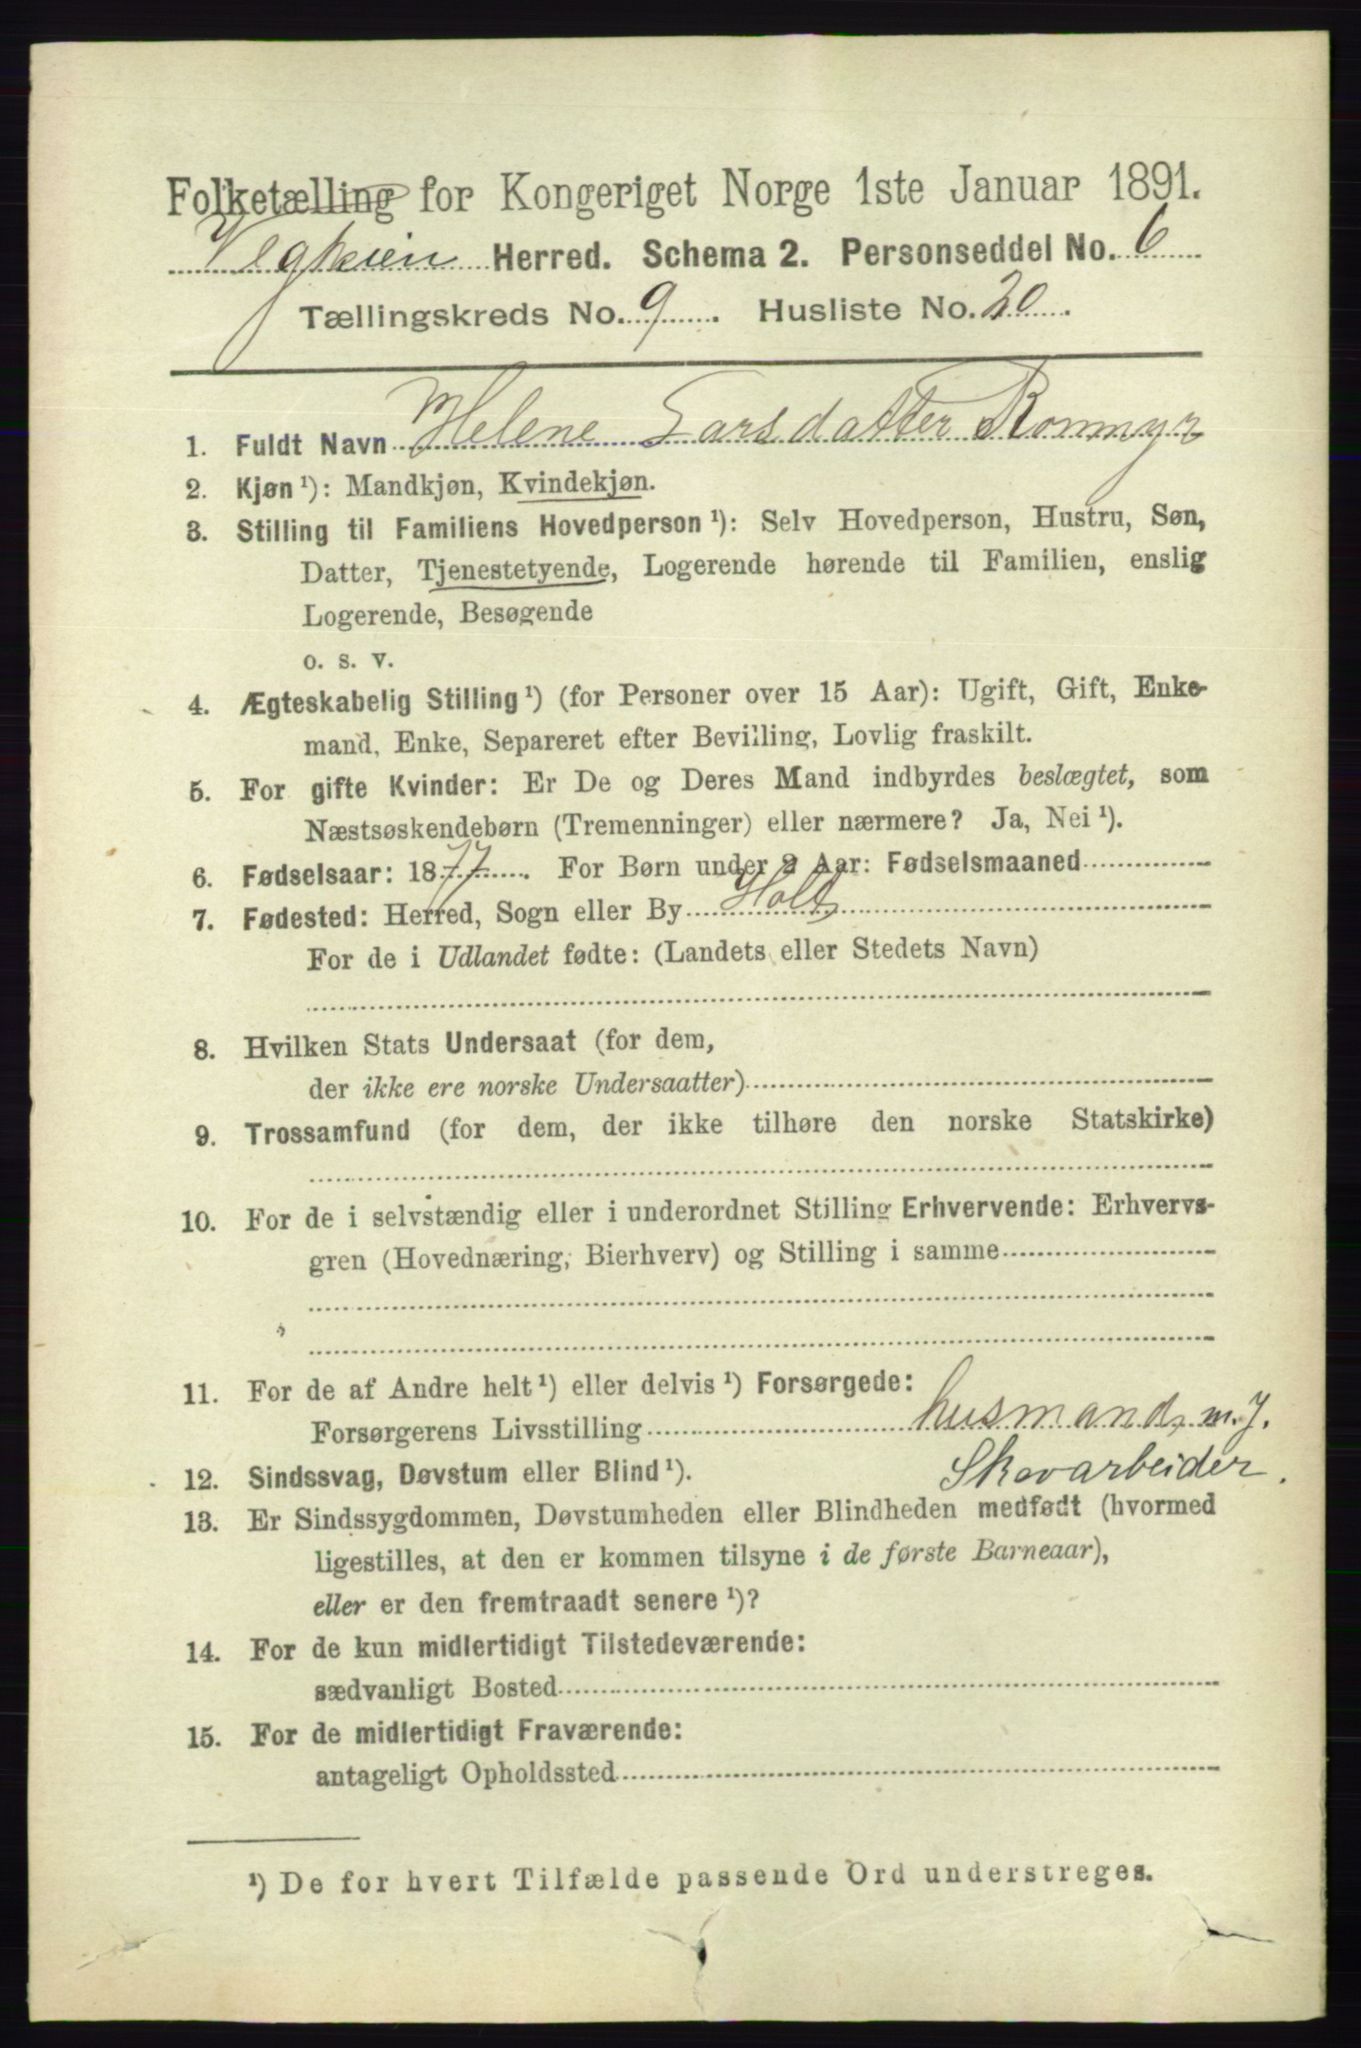 Folketælling for Kongeriget Norge 1ste Januar 1891.
Vegheien Herred. Schema 2. Personseddel No. 6
Tællingskreds No. 9. Husliste No. 20.
1. Fuldt Navn Helene Larsdatter Rommyr
2. Kjøn¹): Mandkjøn, Kvindekjøn.
3. Stilling til Familiens Hovedperson¹): Selv Hovedperson, Hustru, Søn,
Datter, Tjenestetyende, Logerende hørende til Familien, enslig
Logerende, Besøgende
o. s. v.
4. Ægteskabelig Stilling¹) (for Personer over 15 Aar): Ugift, Gift, Enke-
mand, Enke, Separeret efter Bevilling, Lovlig fraskilt.
5. For gifte Kvinder: Er De og Deres Mand indbyrdes beslægtet, som
Næstsøskendebørn (Tremenninger) eller nærmere? Ja, Nei¹).
6. Fødselsaar: 1877. For Børn under 2 Aar: Fødselsmaaned
7. Fødested: Herred, Sogn eller By Holt
For de i Udlandet fødte: (Landets eller Stedets Navn)
8. Hvilken Stats Undersaat (for dem,
der ikke ere norske Undersaatter)
9. Trossamfund (for dem, der ikke tilhøre den norske Statskirke)
10. For de i selvstændig eller i underordnet Stilling Erhvervende: Erhvervs-
gren (Hovednæring, Bierhverv) og Stilling i samme
11. For de af Andre helt¹) eller delvis¹) Forsørgede:
Forsørgerens Livsstilling husmand m. J.
Skovarbeider.
12. Sindssvag, Døvstum eller Blind¹).
13. Er Sindssygdommen, Døvstumheden eller Blindheden medfødt (hvormed
ligestilles, at den er kommen tilsyne i de første Barneaar),
eller er den fremtraadt senere¹)?
14. For de kun midlertidigt Tilstedeværende:
sædvanligt Bosted
15. For de midlertidigt Fraværende:
antageligt Opholdssted
¹) De for hvert Tilfælde passende Ord understreges.